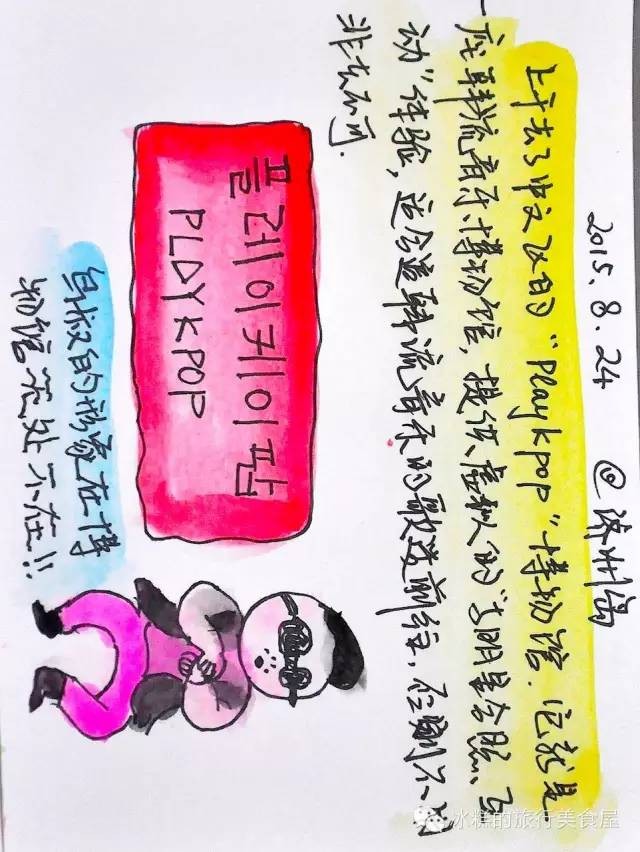 2015.8.24 @济州岛
上午去了中文区的"Playkpop"博物馆. 它就是
一座韩流音乐博物馆, 提供虚拟的"与明星合照、互
动"体验, 适合追韩流音乐的歌迷前往, 否则不
非去不可.
플레이케이팝
PLAYKPOP
鸟叔的形象在博
物馆无处不在!!
冰糕的旅行美食屋